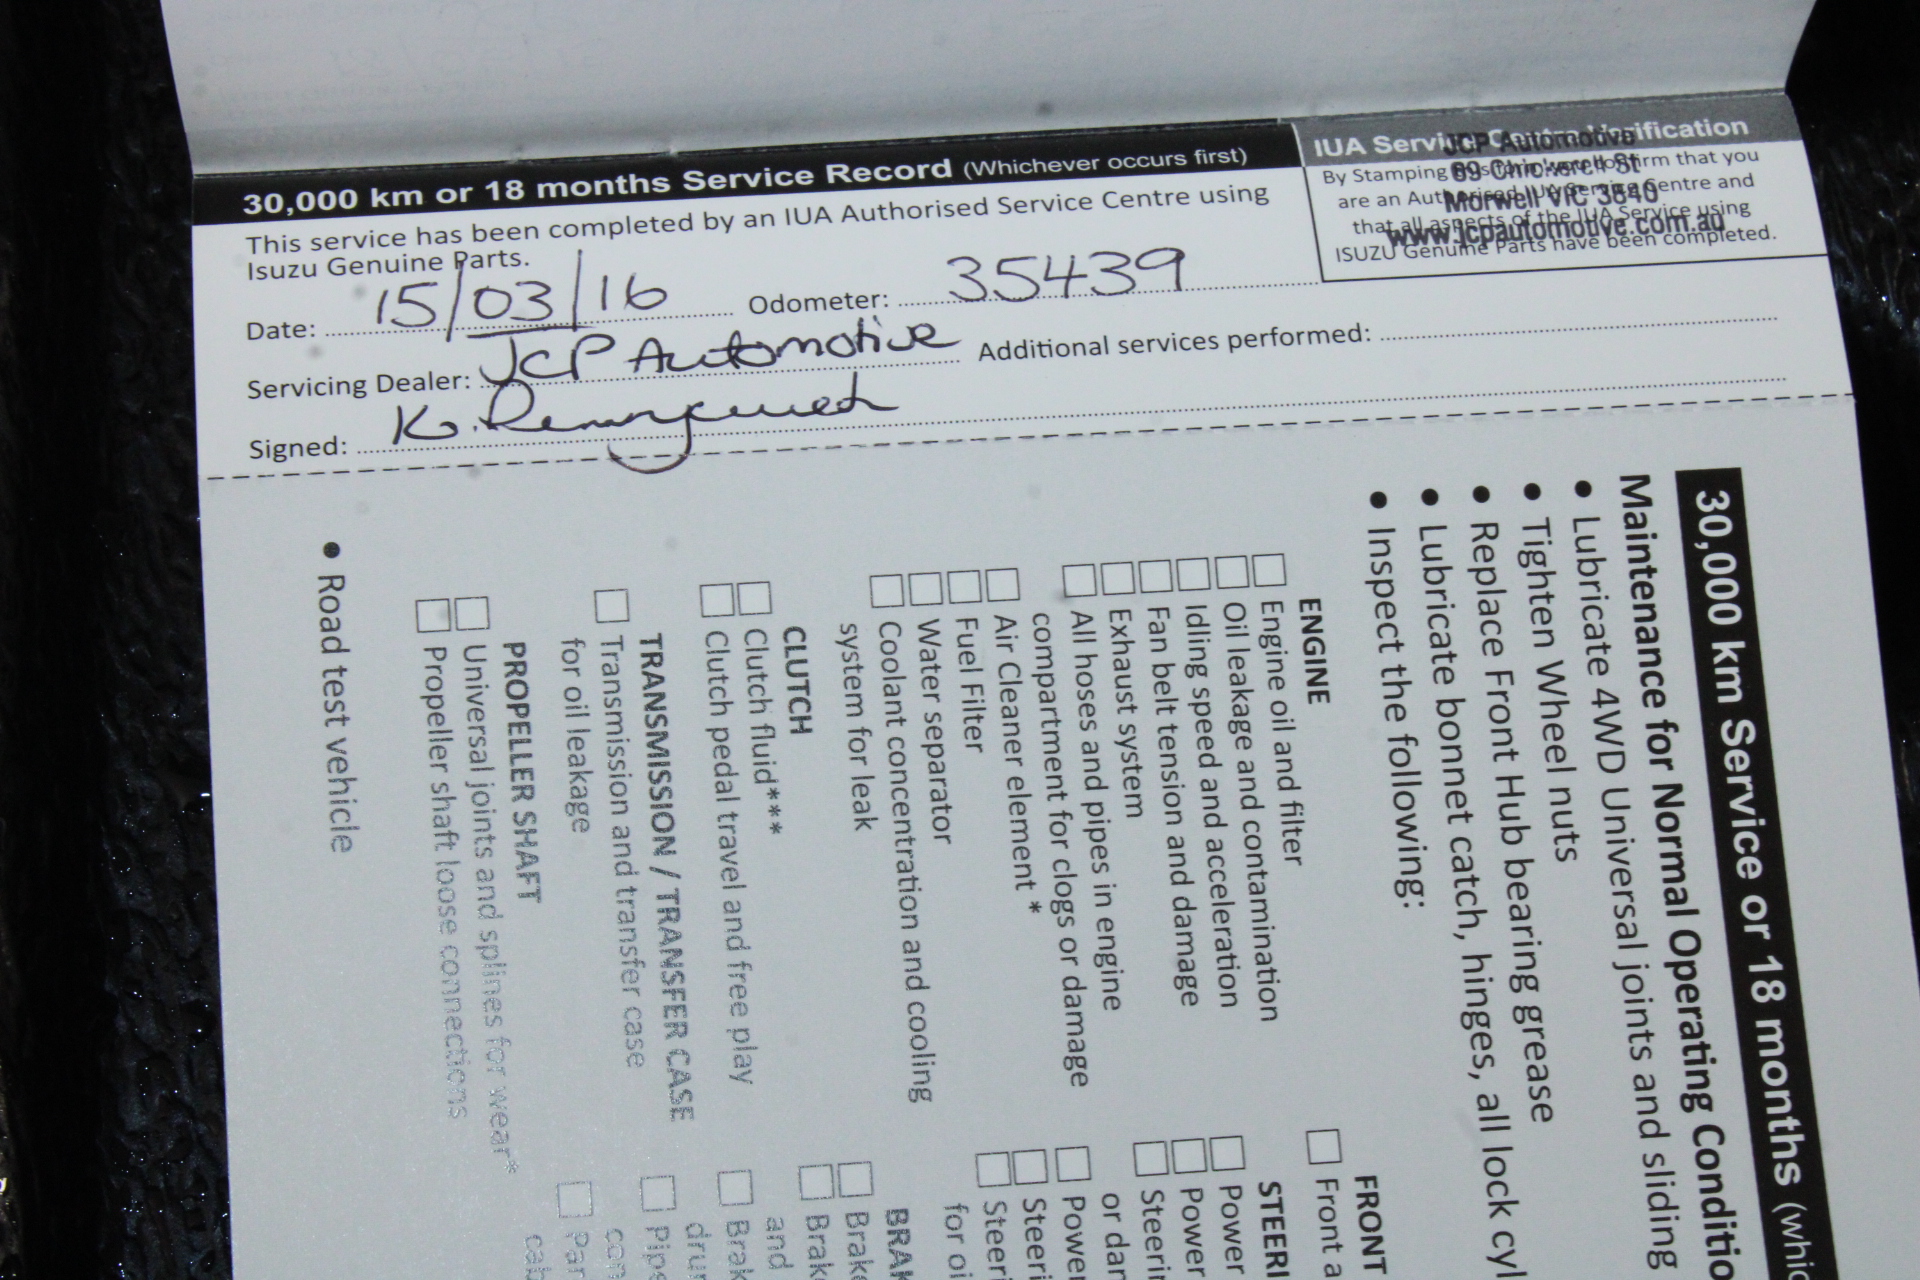 30,000 km or 18 months Service Record (Whichever occurs first)
This service has been completed by an IUA Authorised Service Centre using
Isuzu Genuine Parts.
Date: 15/03/16 Odometer: 35439
Servicing Dealer: JCP Automotive Additional services performed:
Signed: K.
IUA Service Centre Verification
By Stamping this form you confirm that you
are an Authorised IUA Service Centre and
that all aspects of the IUA Service using
ISUZU Genuine Parts have been completed.
JCP Automotive
Morwell VIC 3840
www.jcpautomotive.com.au
30,000 km Service or 18 months (whic
Maintenance for Normal Operating Conditio
• Lubricate 4WD Universal joints and sliding
• Tighten Wheel nuts
• Replace Front Hub bearing grease
• Lubricate bonnet catch, hinges, all lock cyl
• Inspect the following:
ENGINE
Engine oil and filter
Oil leakage and contamination
Idling speed and acceleration
Fan belt tension and damage
Exhaust system
All hoses and pipes in engine
compartment for clogs or damage
Air Cleaner element *
Fuel Filter
Water separator
Coolant concentration and cooling
system for leak
CLUTCH
Clutch fluid***
Clutch pedal travel and free play
TRANSMISSION / TRANSFER CASE
Transmission and transfer case
for oil leakage
PROPELLER SHAFT
Universal joints and splines for wear*
Propeller shaft loose connections
• Road test vehicle
FRONT
Front a
STEERI
Power
Power
Steerin
or dan
Power
Steeri
Steeri
for oi
BRAK
Brake
Brake
and
Brak
drun
Pipe
con
Par
cab